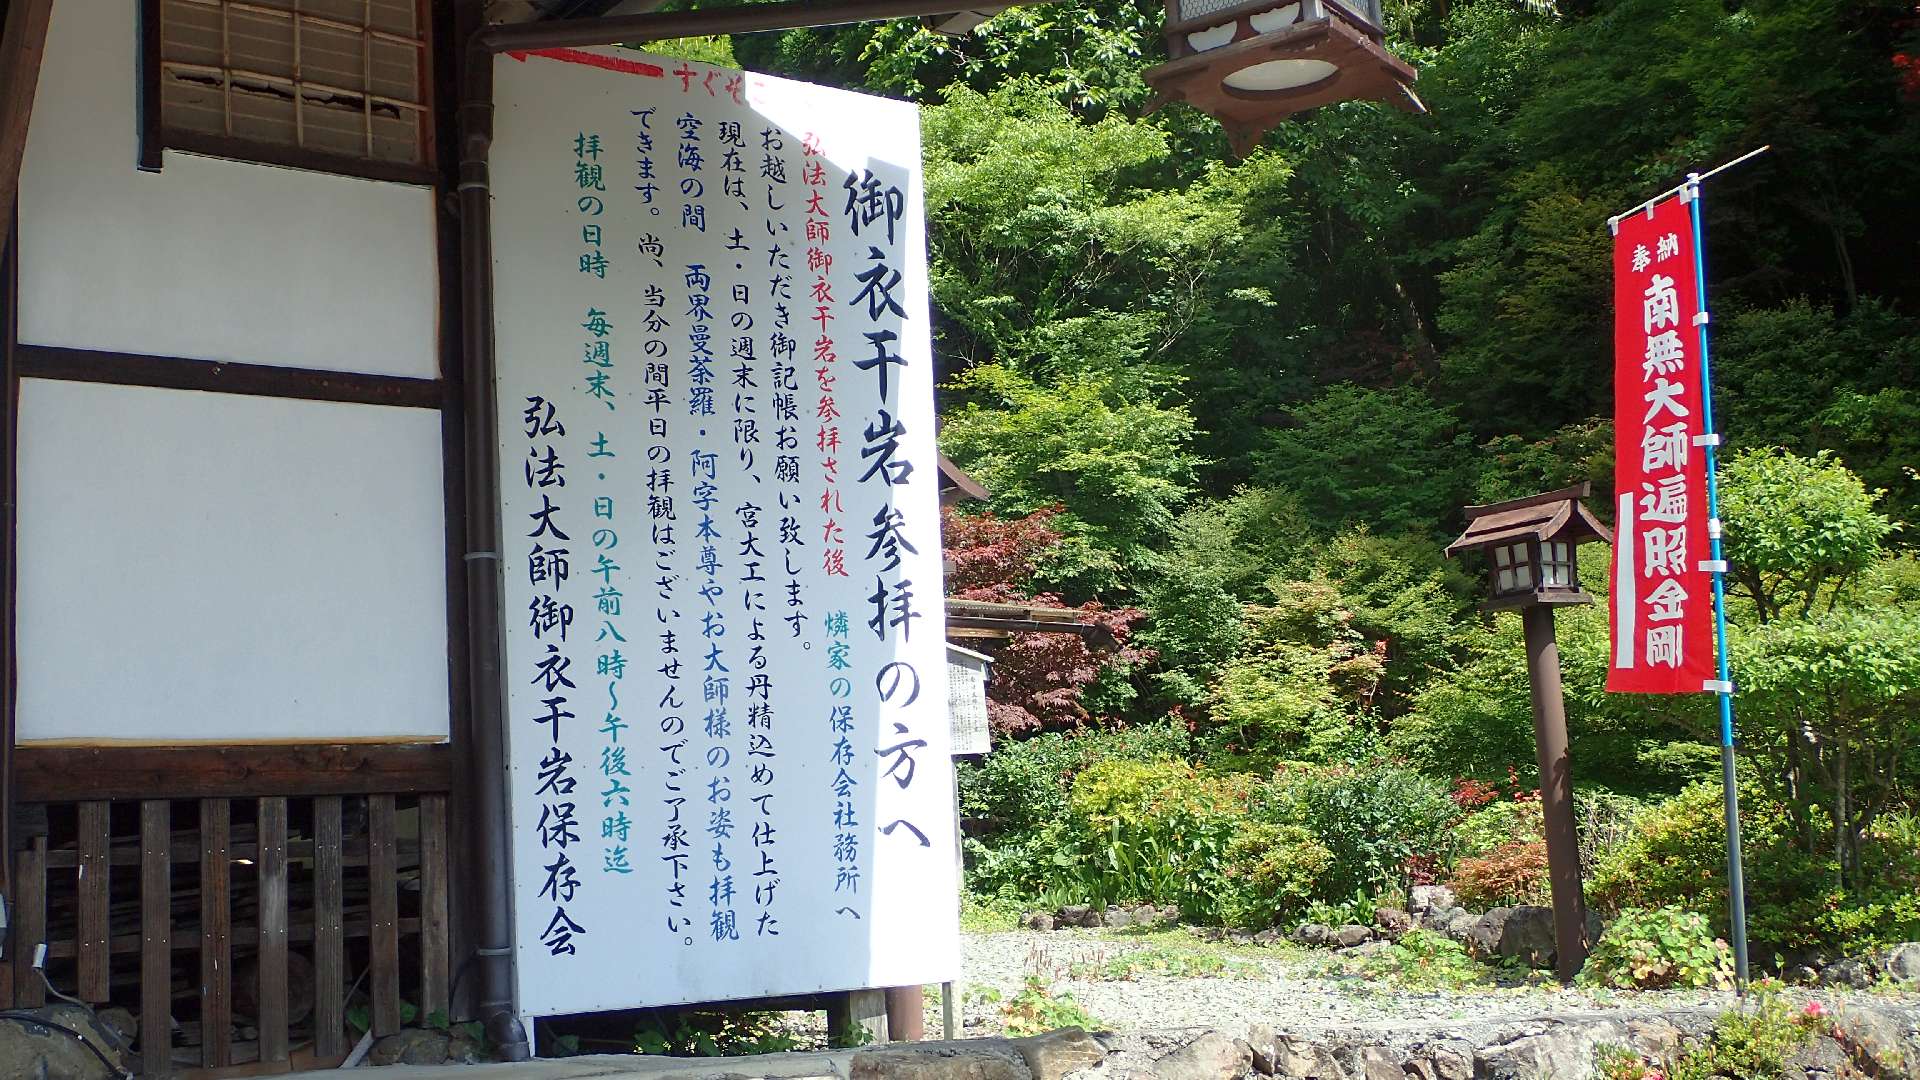 すぐそこ
御衣干岩参拝の方へ
弘法大師御衣干岩を参拝された後 燐家の保存会社務所へ
お越しいただき御記帳お願い致します。
現在は、土・日の週末に限り、宮大工による丹精込めて仕上げた
空海の間 両界曼荼羅・阿字本尊やお大師様のお姿も拝観
できます。尚、当分の間平日の拝観はございませんのでご了承下さい。
拝観の日時 毎週末、土・日の午前八時〜午後六時迄
弘法大師御衣干岩保存会
奉納
南無大師遍照金剛